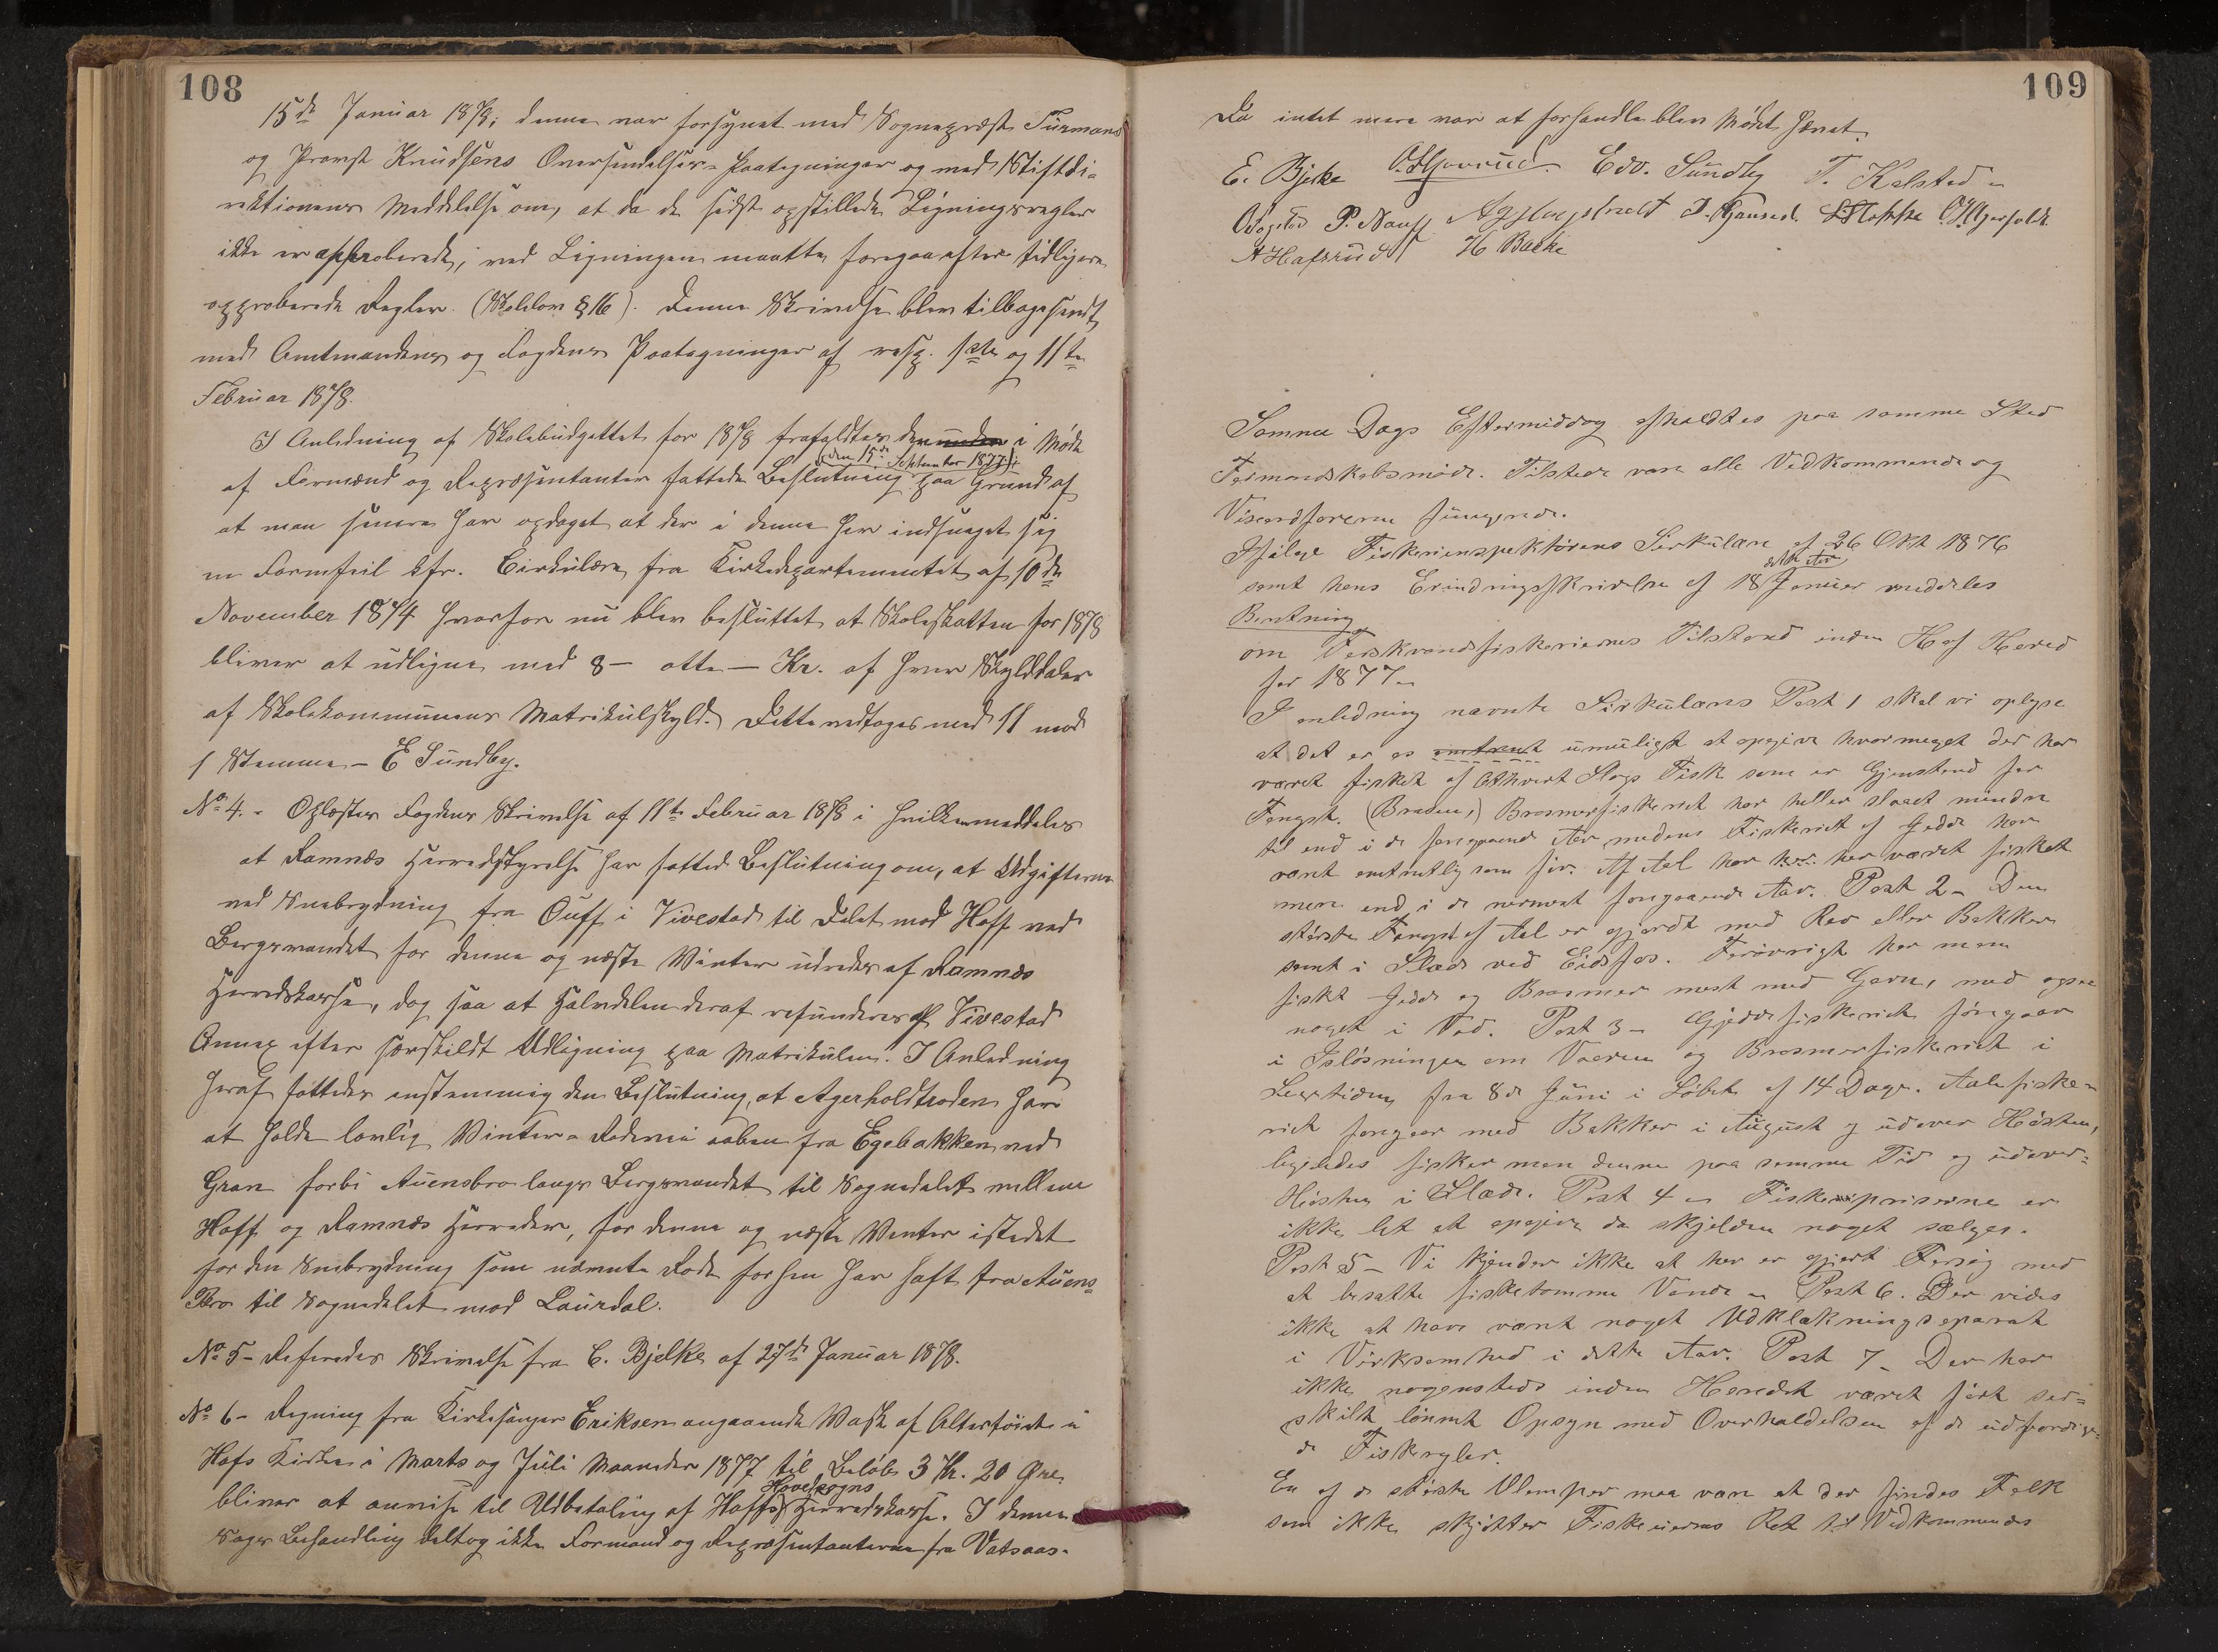 108
15de Januar 1878; denne var forsynet med Sogneprest Türmans
og Provst Knudsens Oversendelses-Paategninger og med Stiftdi-
rektionens Meddelelse om, at da de sidst opstillede Ligningsregler
ikke er approberede, ved Ligningen maatte foregaa efter tidligere
approberede Regler. (Skolelov § 16). Denne Skrivelse blev tilbagesendt
med Amtmandens og Fogdens Paategninger af resp. 1ste og 11te
Februar 1878.
I Anledning af Skolebudgettet for 1878 frafaldtes den i Møde
(den 15de September 1877)
af Formænd og Repræsentanter fattede Beslutning paa Grund af
at man senere har opdaget at der i denne har indsneget sig
en Formfeil kfr. Cirkulære fra Kirkedepartementet af 10de
November 1874 hvorfor nu blev besluttet at Skoleskatten for 1878
bliver at udligne med 8 - otte - Kr. af hver Skylddaler
af Skolekommunens Matrikulskyld. Dette vedtoges med 11 mod
1 Stemme - E Sundby.
No 4. - Oplæstes Fogdens Skrivelse af 11te Februar 1878 i hvilken meddeles
at Ramnes Herredstyrelse har fattet Beslutning om, at Udgifterne
ved Snebrydning fra Ouff i Vivestad til Delet mod Hoff ved
Bergsvandet for denne og næste Vinter udredes af Ramnes
Herredskasse, dog saa at Halvdelen deraf refunderes af Vivestad
Annex efter særskildt Udligning paa Matrikulen. I Anledning
heraf fattedes enstemmig den Beslutning, at Agerholdtroden har
at holde lovlig Vinter-Rodevei aaben fra Egebakken ved
Gran forbi Auensbro langs Bergsvandet til Sognedelet mellem
Hoff og Ramnes Herreder, for denne og næste Vinter istedet
for den Snebrydning som nævnte Rode forhen har haft fra Auens-
Bro til Sognedelet mod Laurdal.
No 5 - Refereredes Skrivelse fra E. Bjelke af 27de Januar 1878.
No 6 - Regning fra Kirkesanger Eriksen angaaende Vask af Altertøiet i
Hofs Kirke i Marts og Juli Maaneder 1877 til Beløb 3 Kr. 20 Øre
Hovedsogns
bliver at anvise til Udbetaling af Hoffs Herredskasse. I denne
Sags Behandling deltog ikke Formænd og Repræsentanterne fra Vatsaas.
109
Da intet mere var at forhandle blev Mødet hævet.
E. Bjelke Edv. Sundby T. Kalstad
P. Nauf L. Hokke
A Hafsrud H Bakke
Samme Dags Eftermiddag afholdtes paa samme Sted
Formandskabsmøde. Tilstede vare alle Vedkommende og
Viseordføreren fungerede.
Ifølge Fiskeriinspektørens Sirkulære af 26 Okt 1876
dette Aar
samt hans Erindringsskrivelse af 18 Januar meddeles
Beretning
om Ferskvandsfiskeriernes Tilstand inden Hof Hered
for 1877
I anledning nævnte Sirkulærs Post 1 skal vi oplyse
at det er os omtrent umuligt at opgive hvormeget der har
været fisket af Ethvert Slags Fisk som er Gjenstand for
Fangst. (Brasem,) Brasmerfiskeriet har heller slaaet mindre
til end i de foregaaende Aar medens Fiskeriet af Gjedde har
været omtrentlig som før. Af Aal har her været fisket
mere end i de nærmest foregaaende Aar. Post 2 - Den
største Fangst af Aal er gjordt med Rev eller Bakker
samt i Slæde ved Eidsfos. Forøvrigt har man
fisket Gjedde og Brasmer mest med Garn, med ogsaa
noget i Vod. Post 3 - Gjeddefiskeriet foregaar
i Isløsningen om Vaaren og Brasmerfiskeriet i
Leegtiden fra 8de Juni i Løbet af 14 Dage. Aalefiske-
riet foregaar med Bakker i August og udover Høsten,
ligeledes fisker man denne paa samme Tid og udover
Høsten i Slæde. Post 4 - Fiskepriserne er
ikke let at opgive da skjelden noget sælges.
Post 5 - Vi kjender ikke at her er gjort Forsøg med
at besætte fisketomme Vande - Post 6. Der vides
ikke at have været noget Udklækningsaparat
i Virksomhed i dette Aar. Post 7 - Der har
ikke nogensteds inden Heredet været ført sær-
skilt lønnet Opsyn med Overholdelsen af de udfærdige-
de Fiskeregler.
En af de største Ulemper maa være at der findes Folk
som ikke skjøtter Fiskeeiernes Ret til Vedkommendes